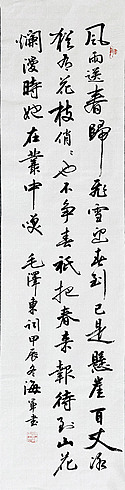 風雨送春歸飛雪迎春到已是懸崖百丈冰
猶有花枝俏俏也不爭春祇把春來報待到山花
爛漫時她在叢中笑 毛澤東詞甲辰冬海軍書